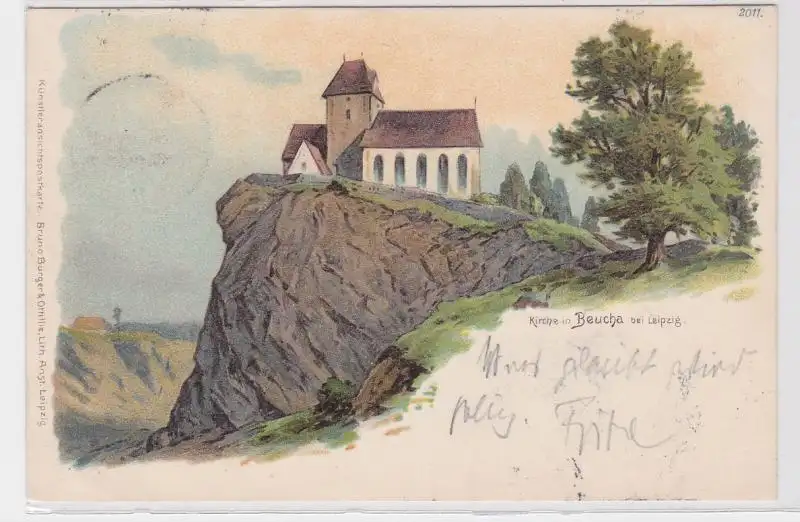 2011.
Künstleransichtspostkarte. Bruno Bürger & Ottilie, Lith. Anst. Leipzig.
Kirche in Beucha bei Leipzig.
Wer glaubt wird
selig. Fritz